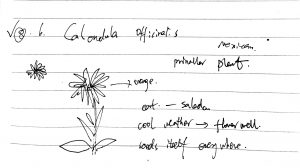 8. Calendula Officinalis
mexican.
primular plant.
→ orange.
eat — salad
cool weather → flower well.
seeds itself everywhere.